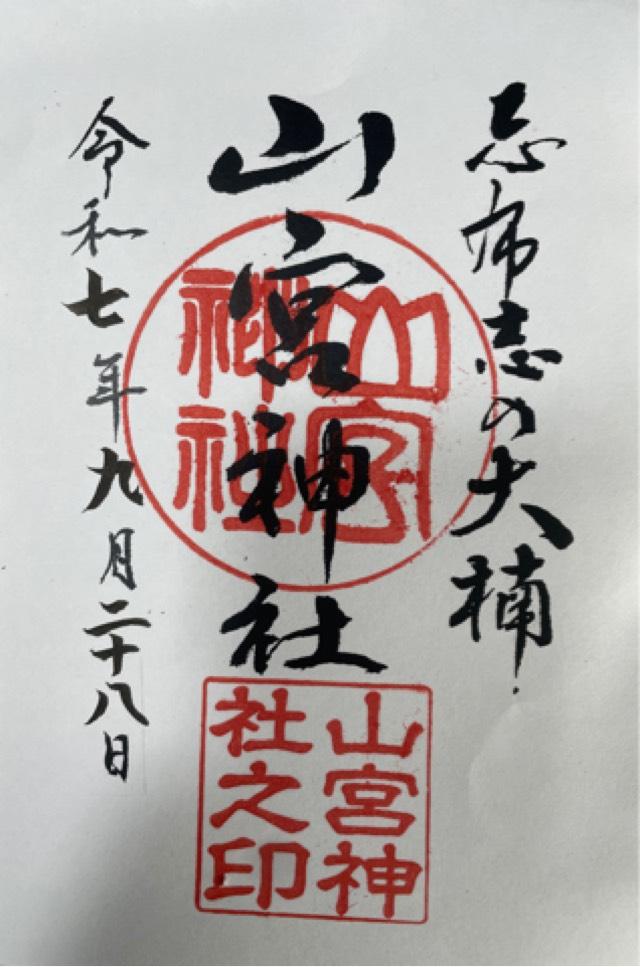 志布志の大楠
山宮神社
令和七年九月二十八日
山宮神社
山宮神社之印